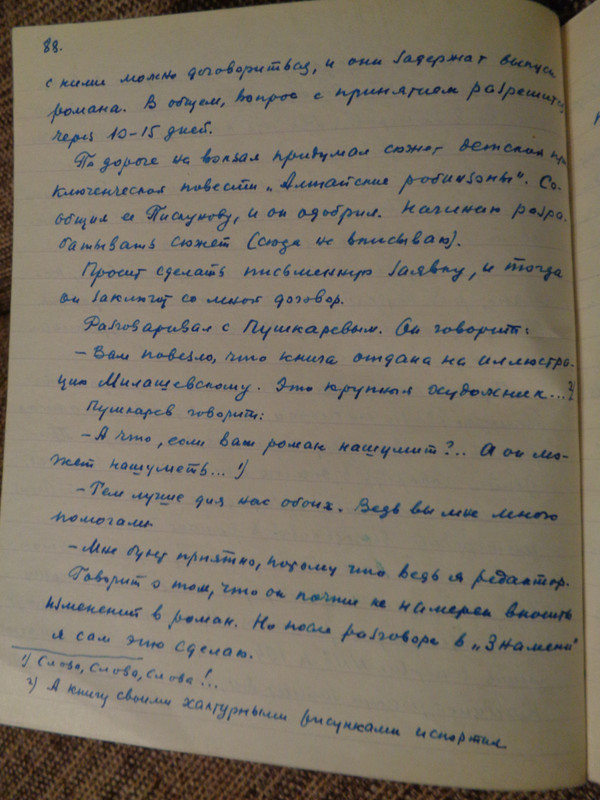 88.
с ними можно договориться, и они задержат выпуск
романа. В общем, вопрос с принятием разрешится
через 10–15 дней.
По дороге на вокзал придумал сюжет детской при-
ключенческой повести „Алтайские робинзоны". Со-
общил ее Пискунову, и он одобрил. Начинаю разра-
батывать сюжет (сюда не вписываю).
Просит сделать письменную заявку, и тогда
он заключит со мной договор.
Разговаривал с Пушкаревым. Он говорит:
– Вам повезло, что книга отдана на иллюстра-
цию Милашевскому. Это крупный художник... 2)
Пушкарев говорит:
– А что, если ваш роман нашумит?.. А он мо-
жет нашуметь... 1)
– Тем лучше для нас обоих. Ведь вы мне много
помогали.
– Мне будет приятно, потому что ведь я редактор.
Говорит о том, что он почти не намерен вносить
изменений в роман. Но после разговора в „Знамени"
я сам это сделаю.
1) Слова, слова, слова!..
2) А книгу своими халтурными рисунками испортил.